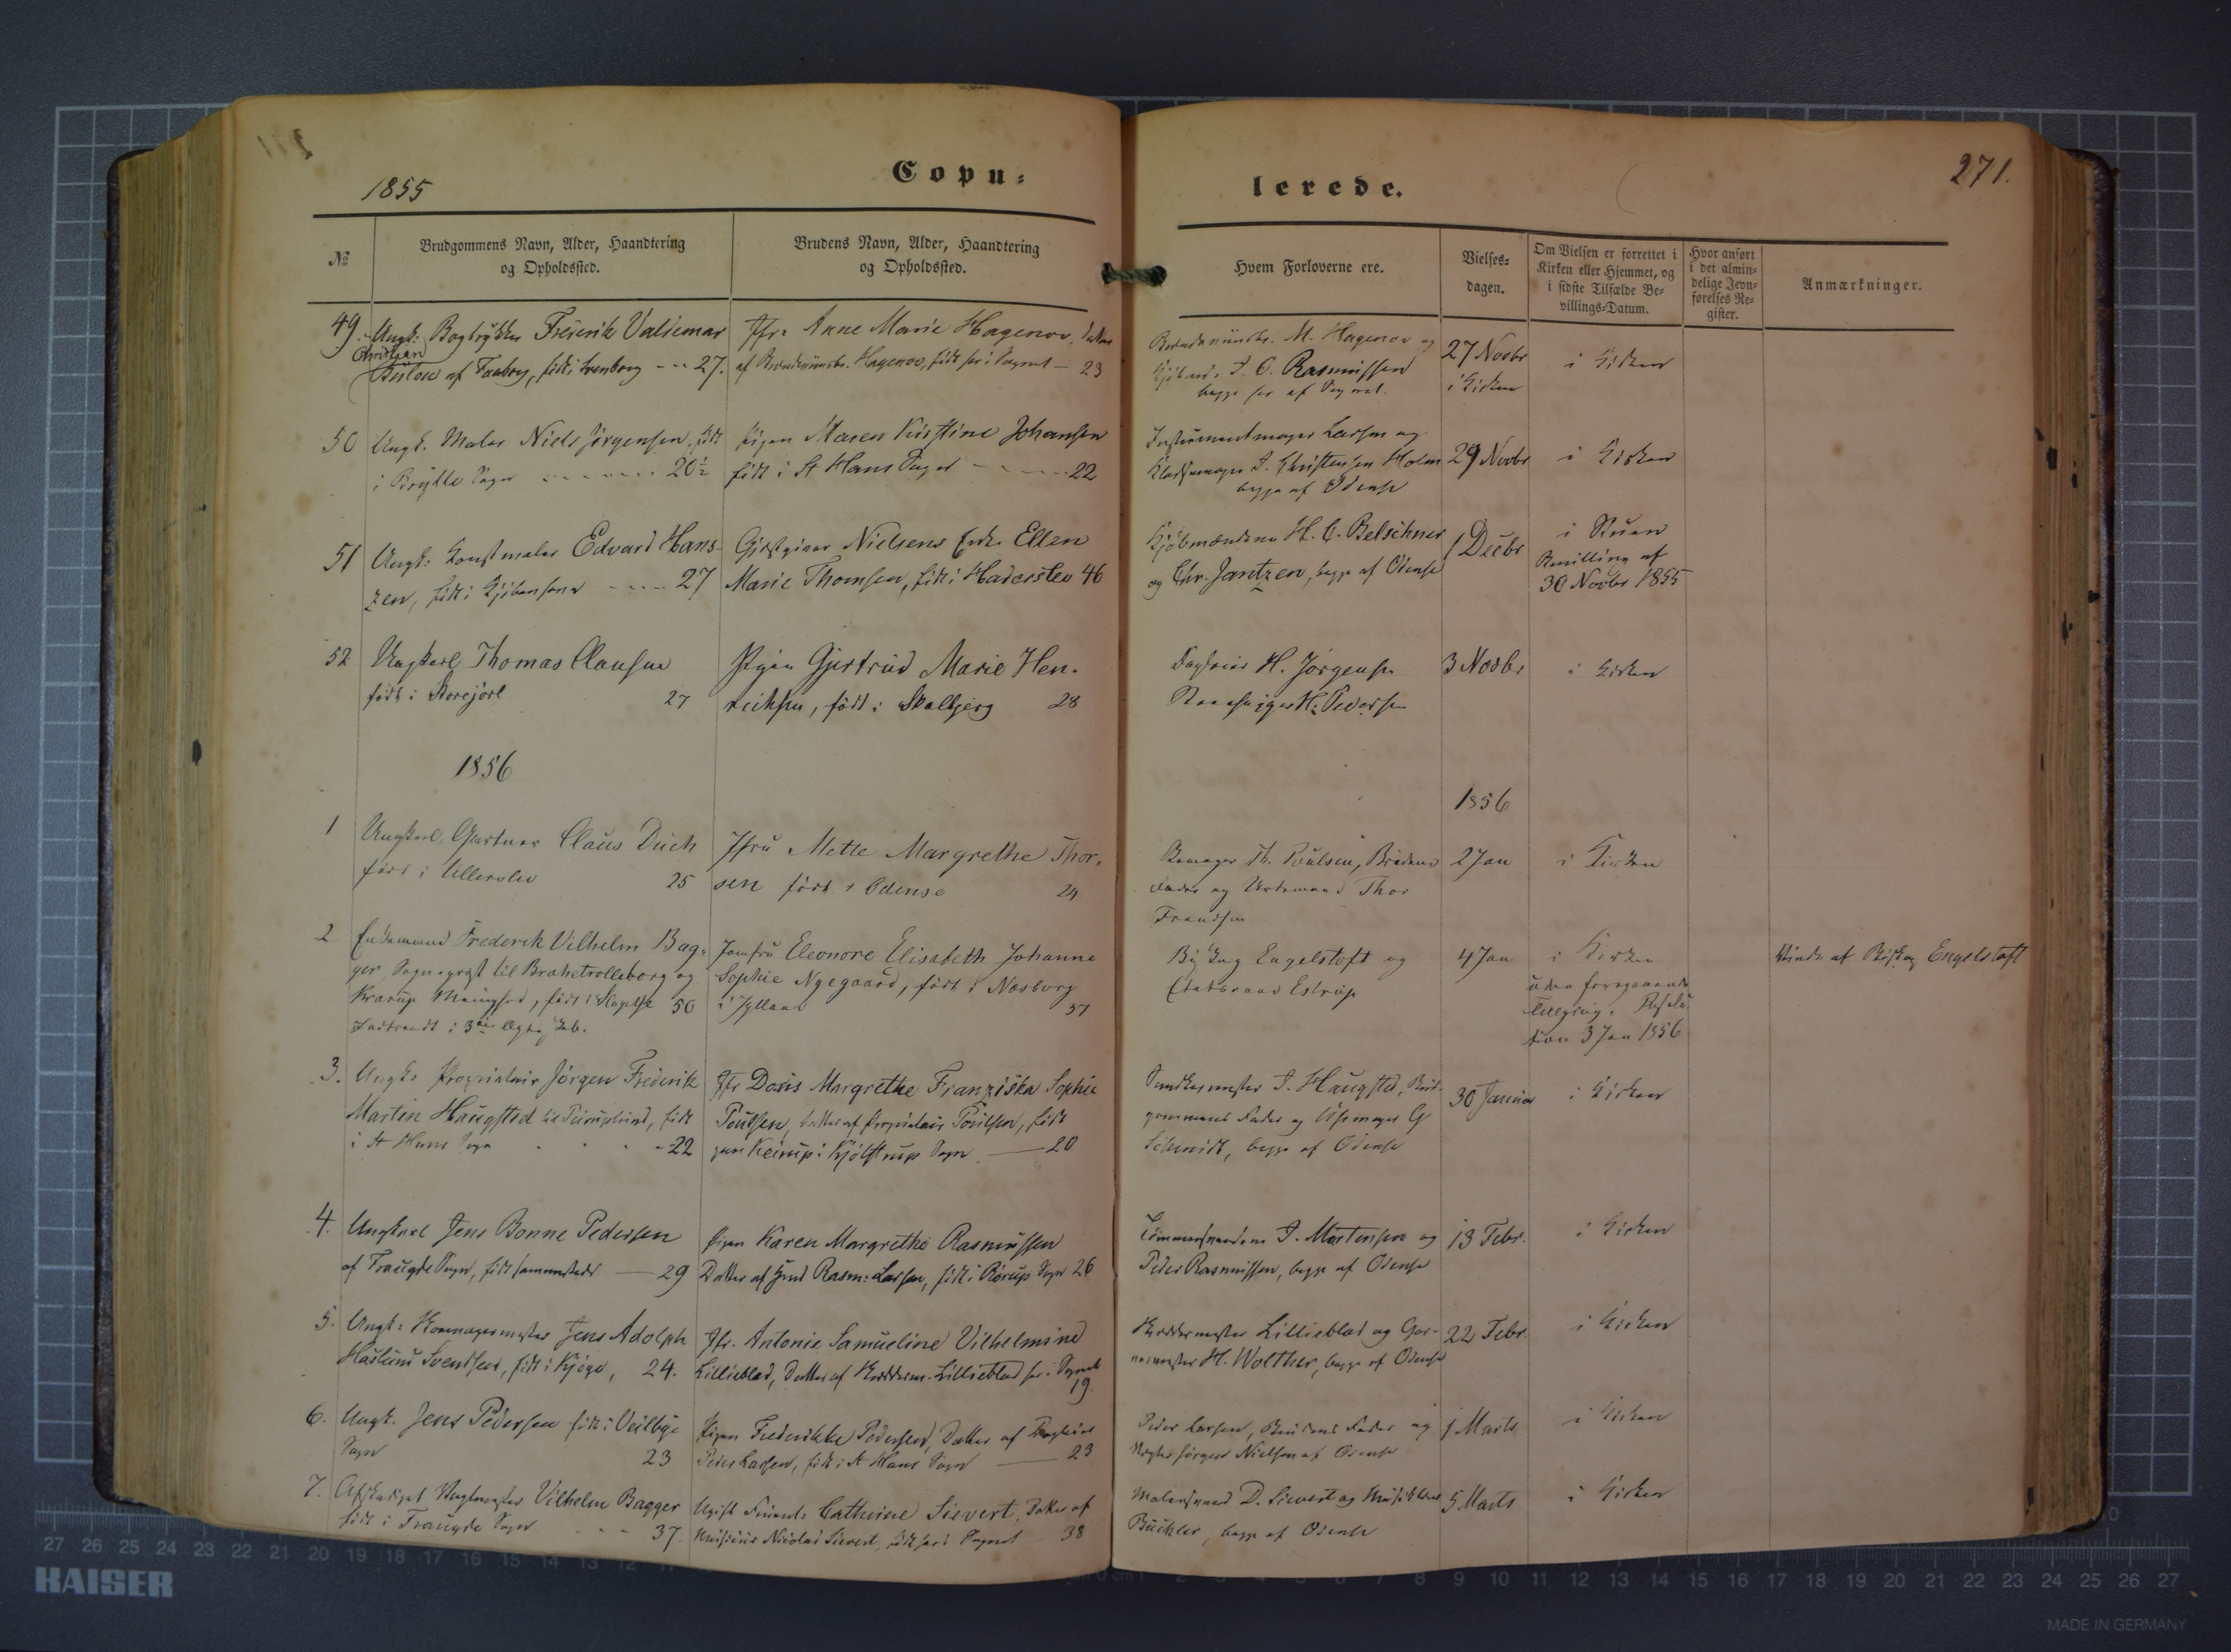 1855
Copu=
lerede.
271.
№
Brudgommens Navn, Alder, Haandtering
og Opholdssted.
Brudens Navn, Alder, Haandtering
og Opholdssted.
Hvem Forloverne ere.
Vielses=
dagen.
Om Vielsen er forrettet i
Kirken eller Hjemmet, og
i sidste Tilfælde Be=
villings=Datum.
Hvor anført
i det almin=
delige Jevn=
førelses Re=
gister.
Anmærkninger.
49. Ungk: Bogtrykker Frederik Valdemar
Christian
af Faaborg, født i Svenborg 27.
Jfr: Anne Marie Hagenov, Datter
af Hagenov, født her i Sognet — 23
M. Hagenov og
Rasmussen
begge her af Sognet.
27 Novbr
i Kirken
i Kirken
50 Ungk. Maler Niels Jørgensen, født
i Brylle Sogn 20½
Pigen Maren Kirstine Johansen
født i St Hans Sogn 22
Instrumentmager Larsen og
Christensen Holm
begge af Odense
29 Novbr
i Kirken
51 Ungk: Kunstmaler Edvard Hans-
zen, født i Kjøbenhavn 27
Gjæstgiver Nielsens Enke Ellen
Marie Thomsen, født i Haderslev 46
Kjøbmændene H. C. Betschner
og Chr. Jantzen, begge af Odense
1 Decbr
i Stuen
Bevilling af
30 Novbr 1855
52 Ungkarl Thomas Clausen
født i 27
Pigen Gjertrud Marie Hen-
richsen, født i Skalbjerg 28
H. Jørgensen
H. Pedersen
3 Novbr
i Kirken
1856
1856
1 Ungkarl, Gartner Claus Duch
født i Ullerslev 25
Jfru Mette Margrethe Thor-
sen født i Odense 24
Th. Poulsen, Brudens
Fader og Thor
Frandsen
2 Jan
i Kirken
2 Enkemand Frederik Vilhelm Bag-
ger, Sognepræst til Brahetrolleborg og
Krarup Menighed, født i Slagelse 50
Indtraadt i 3die Ægteskab.
Jomfru Eleonore Elisabeth Johanne
Sophie Nyegaard, født i Nørborg
i Jylland 37
Biskop Engelstoft og
Etatsraad Estrup
4 Jan
i Kirken
uden foregaaende
Tillysning. Resolu-
tion 3 Jan 1856
Viede af Biskop Engelstoft
3. Ungk: Proprietair Jørgen Frederik
Martin Haugsted født
i St Hans Sogn 22
Jfr Doris Margrethe Franziska Sophie
Poulsen, Datter af Proprietair Poulsen, født
paa i Kjølstrup Sogn — 20
J. Haugsted, Brud-
gommens Fader og G
Schmidt, begge af Odense
30 Januar
i Kirken
4. Ungkarl Jens Bonne Pedersen
af Fraugde Sogn, født sammesteds — 29
Pigen Karen Margrethe Rasmussen
Datter af Rasm: Larsen, født i Rørup Sogn 26
Tømmermændene J. Mortensen og
Peder Rasmussen, begge af Odense
13 Febr.
i Kirken
5. Ungk: Skomagermester Jens Adolph
Haslund Svendsen, født i Kjøge, 24.
Jfr. Antonie Samueline Vilhelmine
Lillieblad, Datter af Lillieblad her i Sognet
19.
Lillieblad og Gar-
vermester H. Wolther, begge af Odense
22 Febr.
i Kirken
6. Ungk. Jens Pedersen født i Veilbye
Sogn 23
Pigen Frederikke Pedersen, Datter af
Peder Larsen, født i St Hans Sogn — 23
Peder Larsen, Brudens Fader og
Jørgen Nielsen af Odense
1 Marts
i Kirken
7. Afskediget Vagtmester Vilhelm Bagger
født i Fraugde Sogn 37.
Ugift Cathrine Sievert, Datter af
Nicolai Sievert, født her i Sognet — 38
D. Sievert og
Büchler, begge af Odense
5 Marts
i Kirken
27 26 25 24 23 22 21 20 19 18 17 16 15 14 13 12
2 3 4 5 6 7 8 9 10 11 12 13 14 15 16 17 18 19 20 21 22 23 24 25 26 27
KAISER
MADE IN GERMANY